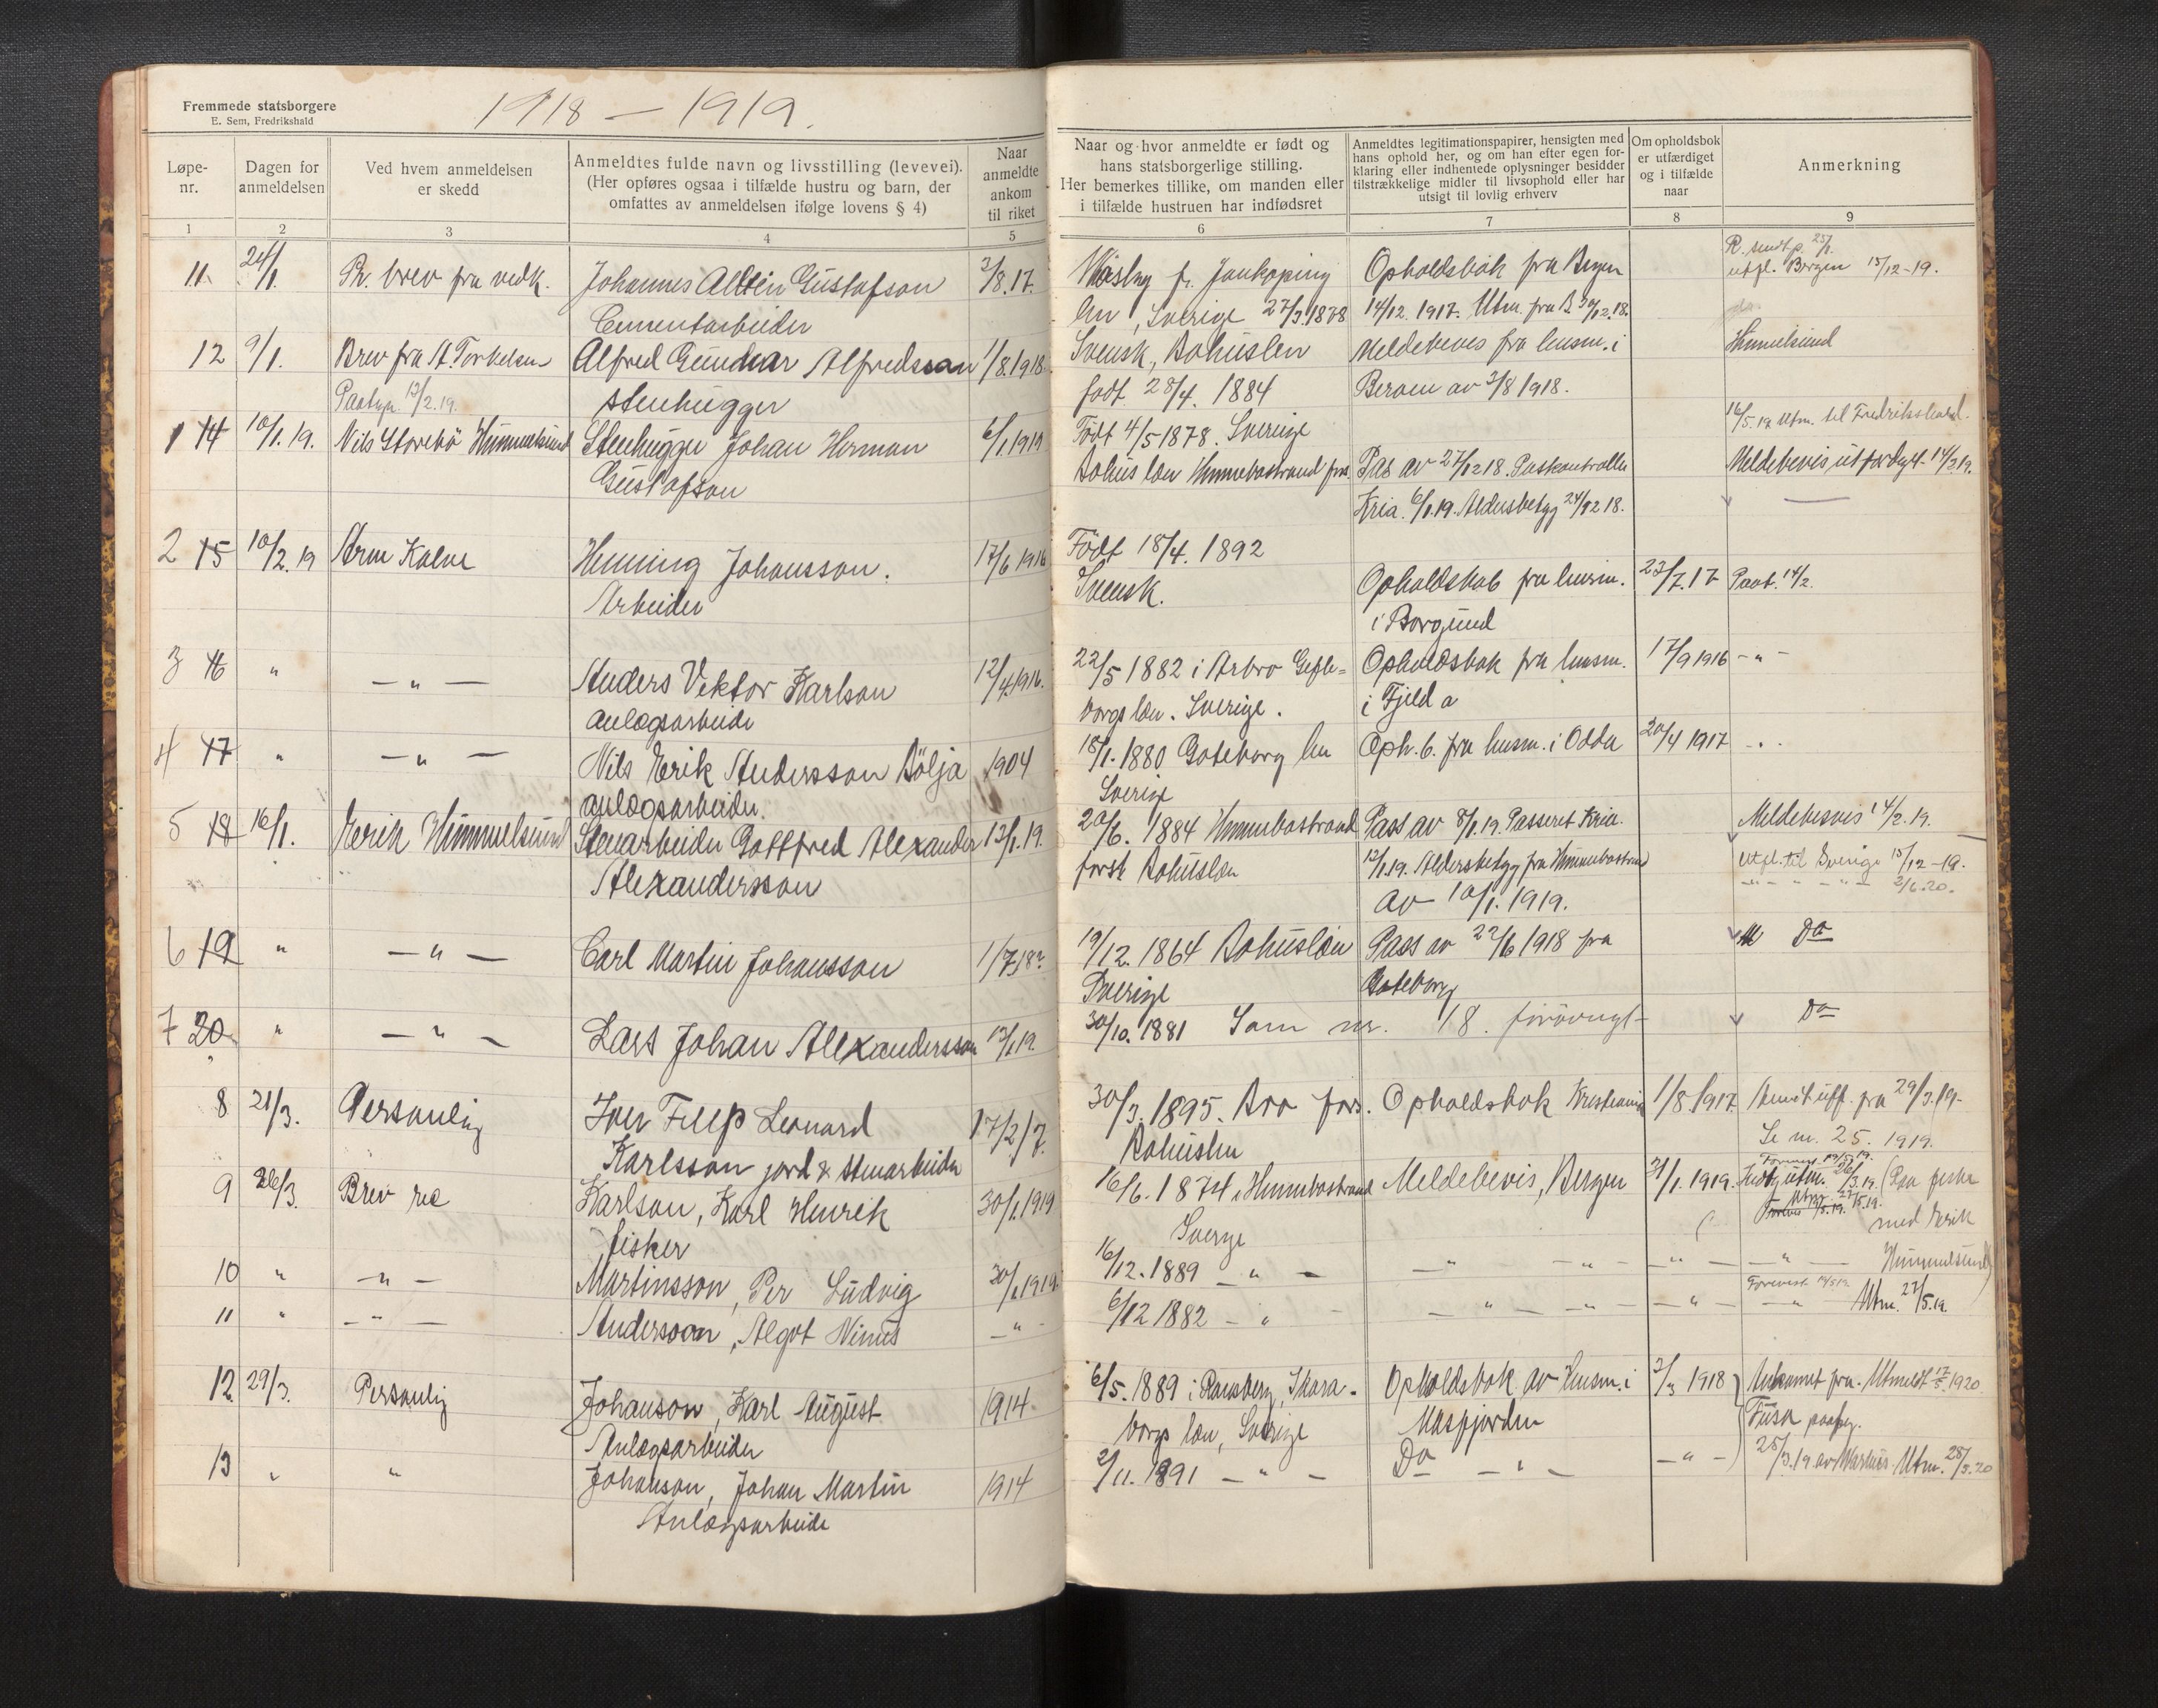 Fremmede statsborgere
E. Sem, Fredrikshald
1918 — 1919.
Løpe-nr.
Dagen for anmeldelsen
Ved hvem anmeldelsen er skedd
Anmeldtes fulde navn og livsstilling (levevei).
(Her opføres ogsaa i tilfælde hustru og barn, der
omfattes av anmeldelsen ifølge lovens § 4)
Naar anmeldte ankom til riket
1 2 3 4 5
11. 24/1. Pr. brev fra vedk. Johannes Gustafson 2/8.17.
Cementarbeider
12 9/1. Brev fra A. Torkelsen Alfred Gunnar Alfredsson 1/8.1918.
12/2.19. stenhugger
1 14 10/1.19. Nils Storebö Hummelsund Stenhugger Johan Herman 6/1.1919
Gustafson
2 15 10/2.19 Arne Kalve Henning Johansson. 17/6 1916
Arbeider
3 16 " — " — Anders Viktor Karlson 12/4.1916.
anlægsarbeide
4 17 " — " — Nils Erik Andersson Bölja 1904
anlægsarbeider.
5 18 16/1. Erik Hummelsund Stenarbeider Gottfred Alexander 13/1.19.
Alexandersson
6 19 " — " — Carl Martin Johansson 1/7.18?
7 20 " — " — Lars Johan Alexandersson 13/1.19.
8 21/3. Personlig Iver Filip Leonard 17/2/17.
Karlsson jord & stenarbeider
9 26/3. Brev Karlson, Karl Henrik 30/1.1919
fisker
10 " — " — Martinsson, Per Ludvig 30/1.1919.
11 " — " — Andersson, Algot Ninus — " —
12. 29/3. Personlig Johanson, Karl August. 1914.
Anlægsarbeider
13 " " Johanson, Johan Martin 1914
Anlægsarbeide
Naar og hvor anmeldte er født og
hans statsborgerlige stilling.
Her bemerkes tillike, om manden eller
i tilfælde hustruen har indfødsret
Anmeldtes legitimationspapirer, hensigten med
hans ophold her, og om han efter egen for-
klaring eller indhentede oplysninger besidder
tilstrækkelige midler til livsophold eller har
utsigt til lovlig erhverv
Om opholdsbok
er utfærdiget
og i tilfælde
naar
Anmerkning
6 7 8 9
fr. Jonkoping Opholdsbok fra Bergen utfl. Bergen 15/12-19.
len, Sverige 27/3.1878 14/12 1917. Utm. fra B. 30/12.18.
Svensk, Bohuslen Meldebevis fra lensm. i Hummelsund
født 28/4. 1884 av 3/8 1918.
16/5.19 Utm. til Fredrikshald.
Född 4/5 1878. Sverige
Bohus len Hunnebostrand Pas av 27/12 18. Paskontrollen Meldebevis utfærdiget 14/2.19.
Kria. 6/1.19. Aldersbetyg 24/12 18.
Född 18/4. 1892
Svensk. Opholdsbok fra lensm. 23/7.17 Paat. 14/2.
i Borgund
22/5 1882 i Arbro Gefle- Opholdsbok fra lensm. 17/9 1916 — " —
borgs len. Sverige. i Fjeld
18/1. 1880 Goteborg len Oph.b. fra lensm. i Odda 20/4 1917 — " —
Sverige
20/6. 1884 Hunnebostrand Pass av 8/1.19. Passeret Kria. Meldebevis 14/2.19.
Bohuslen 12/1.19. Aldersbetyg fra Hunnebostrand utfl. til Sverige 15/12-19.
av 10/1. 1919. — " — " — 2/6.20.
19/12. 1864 Bohuslen Pass av 22/6 1918 fra Do
Sverige Goteborg
30/10. 1881 Som nr. 18. forövrigt Do
30/3. 1895. Bro fors. Opholdsbok Kristiania 1/8.1917. fra 29/3.19.
Bohuslen Se nr. 25. 1919.
16/6. 1874 i Hunnebostrand Meldebevis, Bergen 31/1.1919. 26/3.19. (Paa fiske
Sverge med Erik
16/12.1889 — " — — " — — " — — " — — " — Hummelsund)
6/12 1882 — " — " — " — — " — — " — Utm. 27/5.19.
6/5.1889 i Ransberg, Skara- Opholdsbok av lensm. i 2/3 1918 Ankomet fra. Utmeldt 17/5.1920.
borgs len, Sverige Masfjorden Fusa
2/11.1891 — " — Do — " — — " — 28/3.19. Utm. 28/3.20